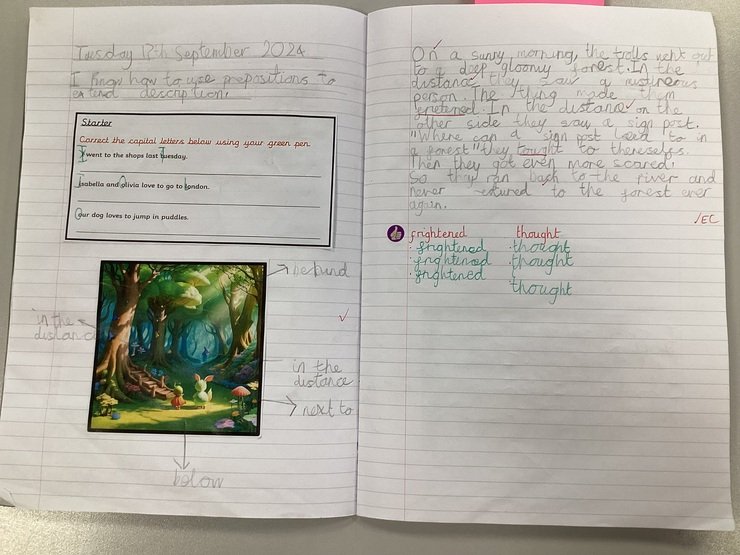 Tuesday 17th September 2024
I know how to use prepositions to
extend description.
Starter
Correct the capital letters below using your green pen.
I went to the shops last Tuesday.
Isabella and Olivia love to go to London.
Our dog loves to jump in puddles.
behind
in the
distance
in the
distance
next to
below
On a sunny morning, the trolls weht out
to a deep gloomy forest. In the
distance they saw a
person. The thing made them
In the distance on the
other side they saw a sign post.
"Where can a sign post lead to in
a forest" they tought to themselfs.
Then they got even more scared.
So they ran back to the river and
never retured to the forest ever
again.
EC
frightened thought
frightened thought
frightened thought
frightened
thought